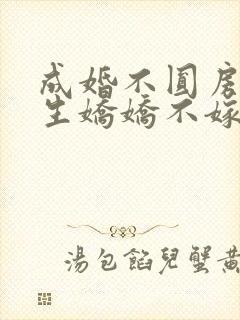 成婚不圓房
生嬌嬌不嫁
湯包餡兒蟹黃